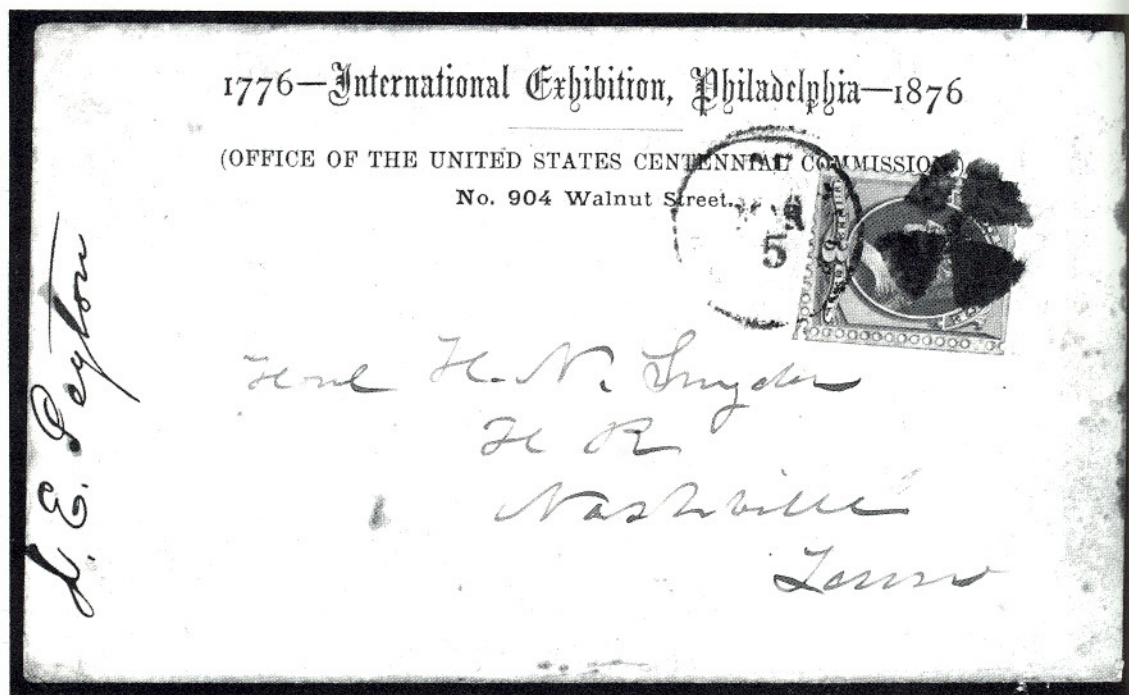 1776—International Exhibition, Philadelphia—1876
(OFFICE OF THE UNITED STATES CENTENNIAL COMMISSION)
No. 904 Walnut Street.
5
Honl H. N. Snyder
H R
Nashville
Tenn
L. E. Peyton